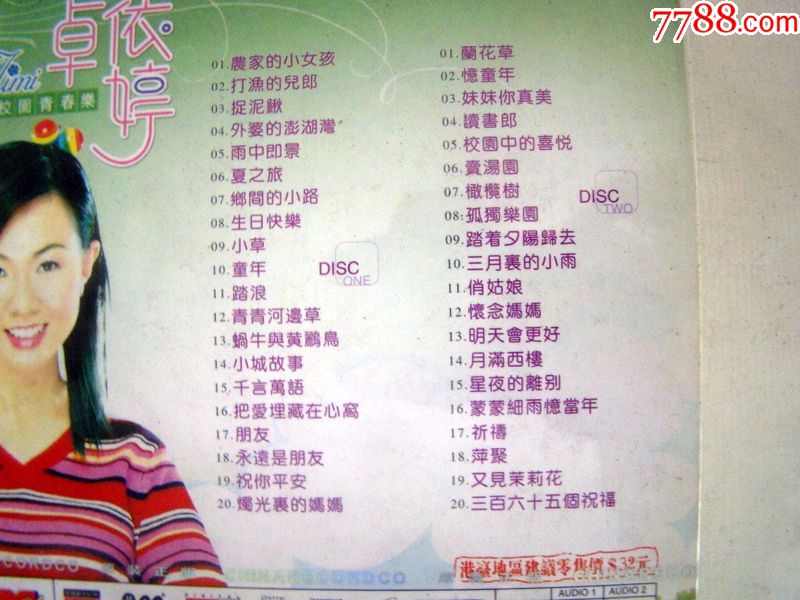 7788.com
卓依婷
Timi
校園青春樂
01.農家的小女孩
02.打漁的兒郎
03.捉泥鰍
04.外婆的澎湖灣
05.雨中即景
06.夏之旅
07.鄉間的小路
08.生日快樂
09.小草
10.童年
11.踏浪
12.青青河邊草
13.蝸牛與黃鸝鳥
14.小城故事
15.千言萬語
16.把愛埋藏在心窩
17.朋友
18.永遠是朋友
19.祝你平安
20.燭光裏的媽媽
DISC
ONE
01.蘭花草
02.憶童年
03.妹妹你真美
04.讀書郎
05.校園中的喜悅
06.賣湯園
07.橄欖樹
08.孤獨樂園
09.踏着夕陽歸去
10.三月裏的小雨
11.俏姑娘
12.懷念媽媽
13.明天會更好
14.月滿西樓
15.星夜的離別
16.蒙蒙細雨憶當年
17.祈禱
18.萍聚
19.又見茉莉花
20.三百六十五個祝福
DISC
TWO
港臺地區建議零售價$32元
AUDIO 1
AUDIO 2